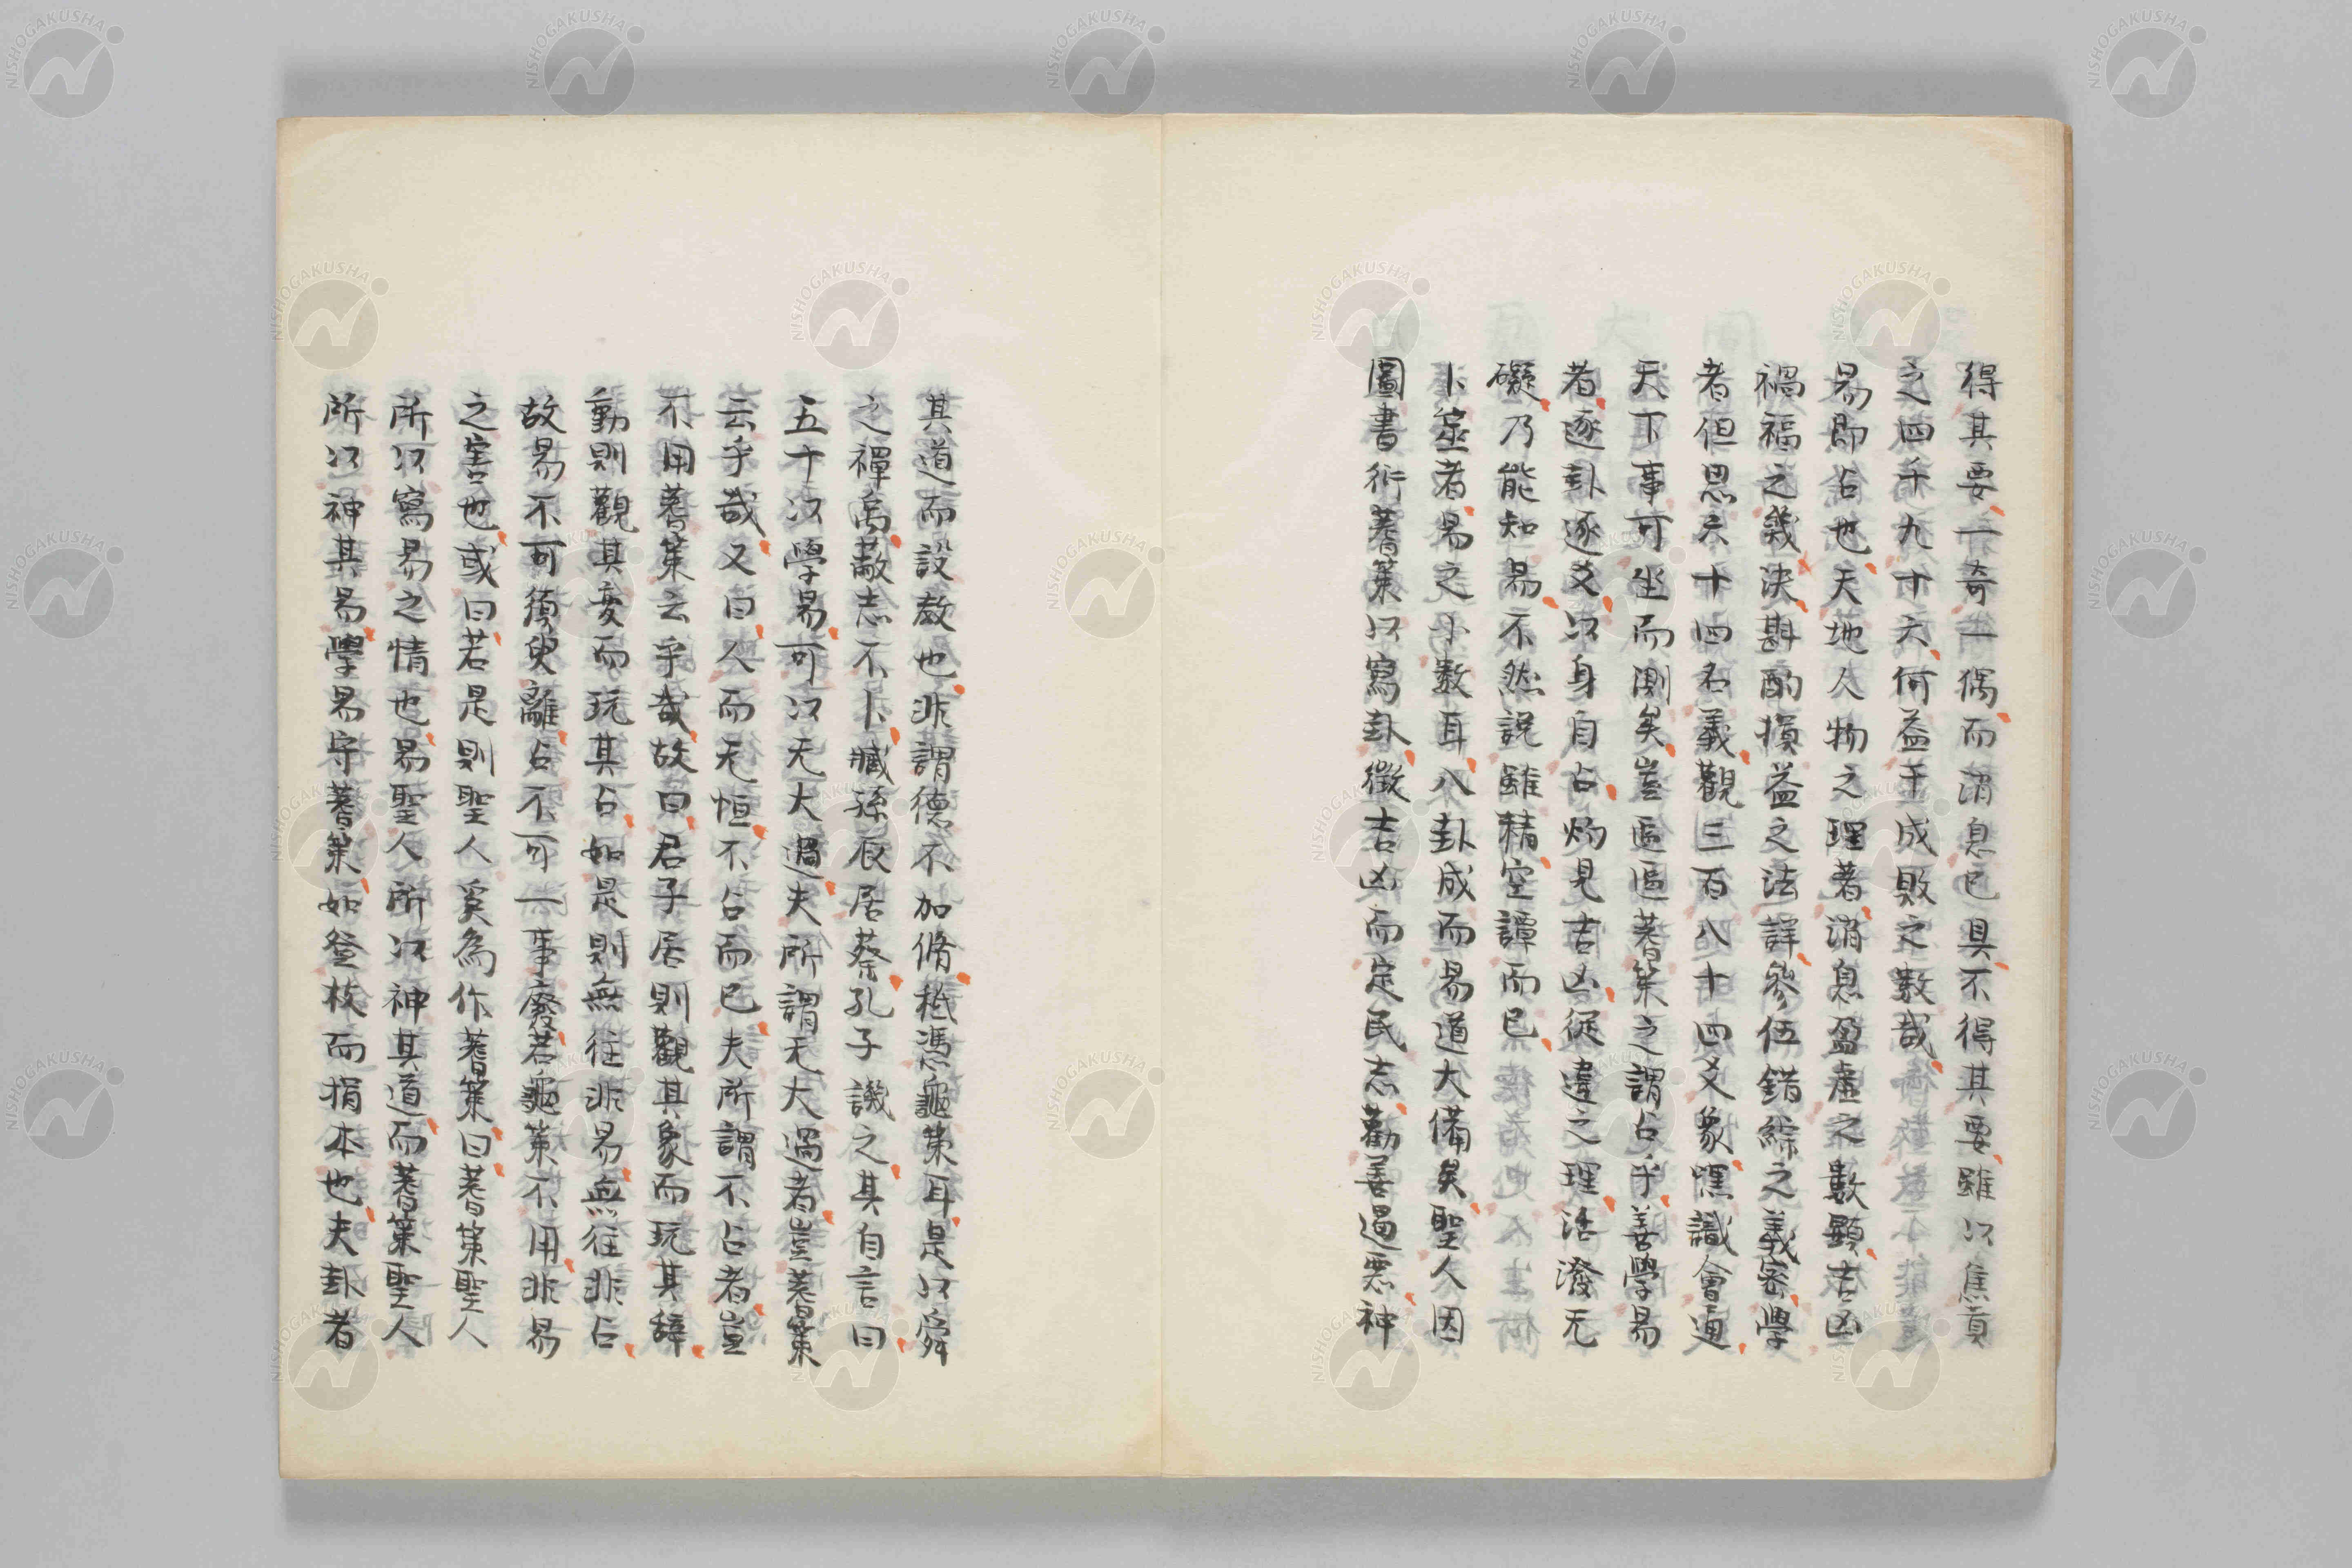 得其要一奇一偶而消息已具不得其要雖以焦貢
之四千九十六何益于成敗之數哉
易即占也天地人物之理著消息盈虛之數顯吉凶
禍福之幾決斟酌損益之法詳參伍錯綜之義密學
者但思六十四名義觀三百八十四爻象嘿識會通
天下事可坐而測矣豈區區蓍策之謂占乎善學易
者逐卦逐爻以身自占灼見吉凶從違之理活潑无
礙乃能知易不然說雖精空譚而已
卜筮者易之小數耳八卦成而易道大備矣聖人因
圖書衍蓍策以寫卦徵吉凶而定民志勸善遏惡神
其道而設教也非謂德不加脩秪憑龜策耳是以舜
之禪禹蔽志不卜臧孫辰居蔡孔子譏之其自言曰
五十以學易可以无大過夫所謂无大過者豈蓍策
云乎哉又曰人而无恒不占而已夫所謂不占者豈
不用蓍策云乎哉故曰君子居則觀其象而玩其辭
動則觀其変而玩其占如是則無往非易無往非占
故易不可須臾離占不可一事廢若龜策不用非易
之害也或曰若是則聖人奚為作蓍策曰蓍策聖人
所以寫易之情也易聖人所以神其道而蓍策聖人
所以神其易學易守蓍策如登枝而捐本也夫卦者
NISHOGAKUSHA